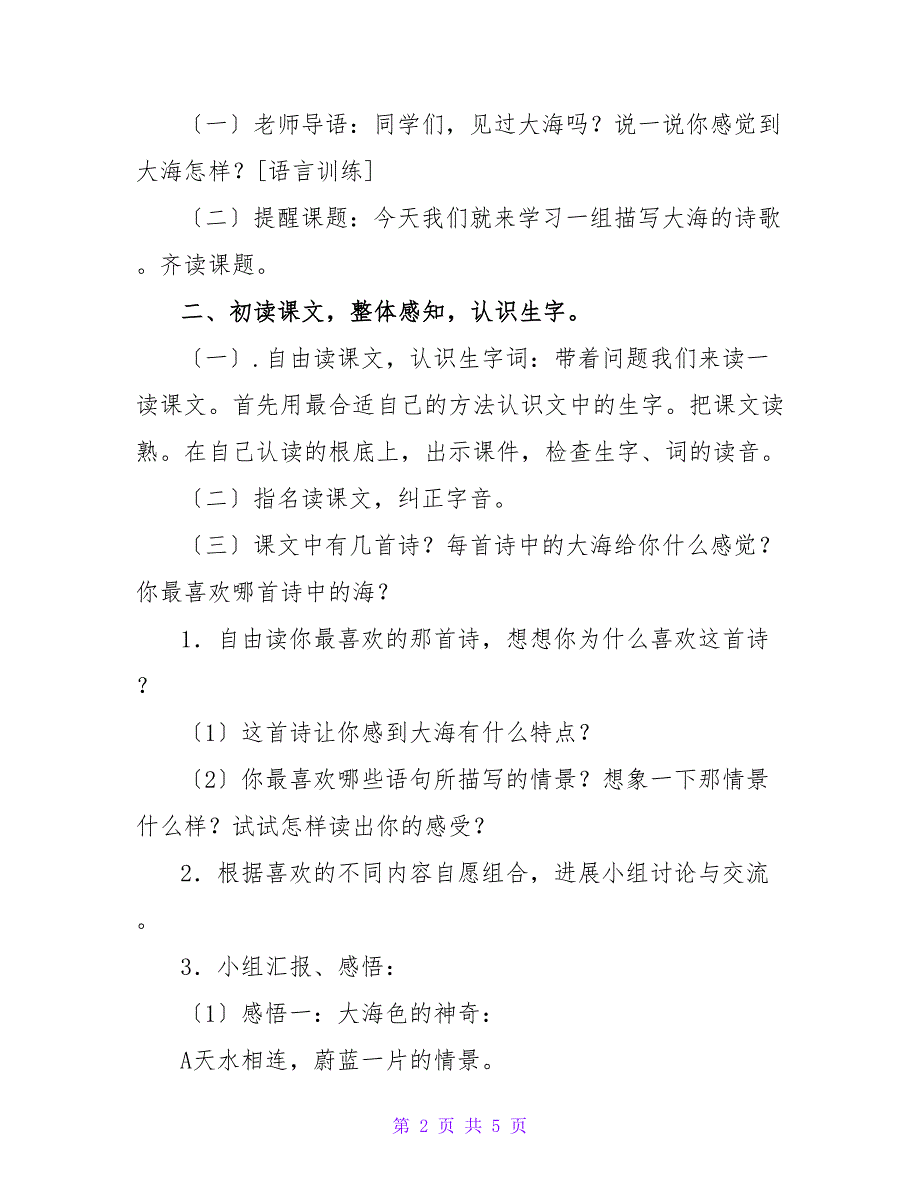 〔一〕老师导语：同学们，见过大海吗？说一说你感觉到
大海怎样？[语言训练]
〔二〕提醒课题：今天我们就来学习一组描写大海的诗歌
。齐读课题。
二、初读课文，整体感知，认识生字。
〔一〕.自由读课文，认识生字词：带着问题我们来读一
读课文。首先用最合适自己的方法认识文中的生字。把课文读
熟。在自己认读的根底上，出示课件，检查生字、词的读音。
〔二〕指名读课文，纠正字音。
〔三〕课文中有几首诗？每首诗中的大海给你什么感觉？
你最喜欢哪首诗中的海？
1．自由读你最喜欢的那首诗，想想你为什么喜欢这首诗
？
〔1〕这首诗让你感到大海有什么特点？
〔2〕你最喜欢哪些语句所描写的情景？想象一下那情景
什么样？试试怎样读出你的感受？
2．根据喜欢的不同内容自愿组合，进展小组讨论与交流
。
3．小组汇报、感悟：
〔1〕感悟一：大海色的神奇：
A天水相连，蔚蓝一片的情景。
第 2 页 共 5 页